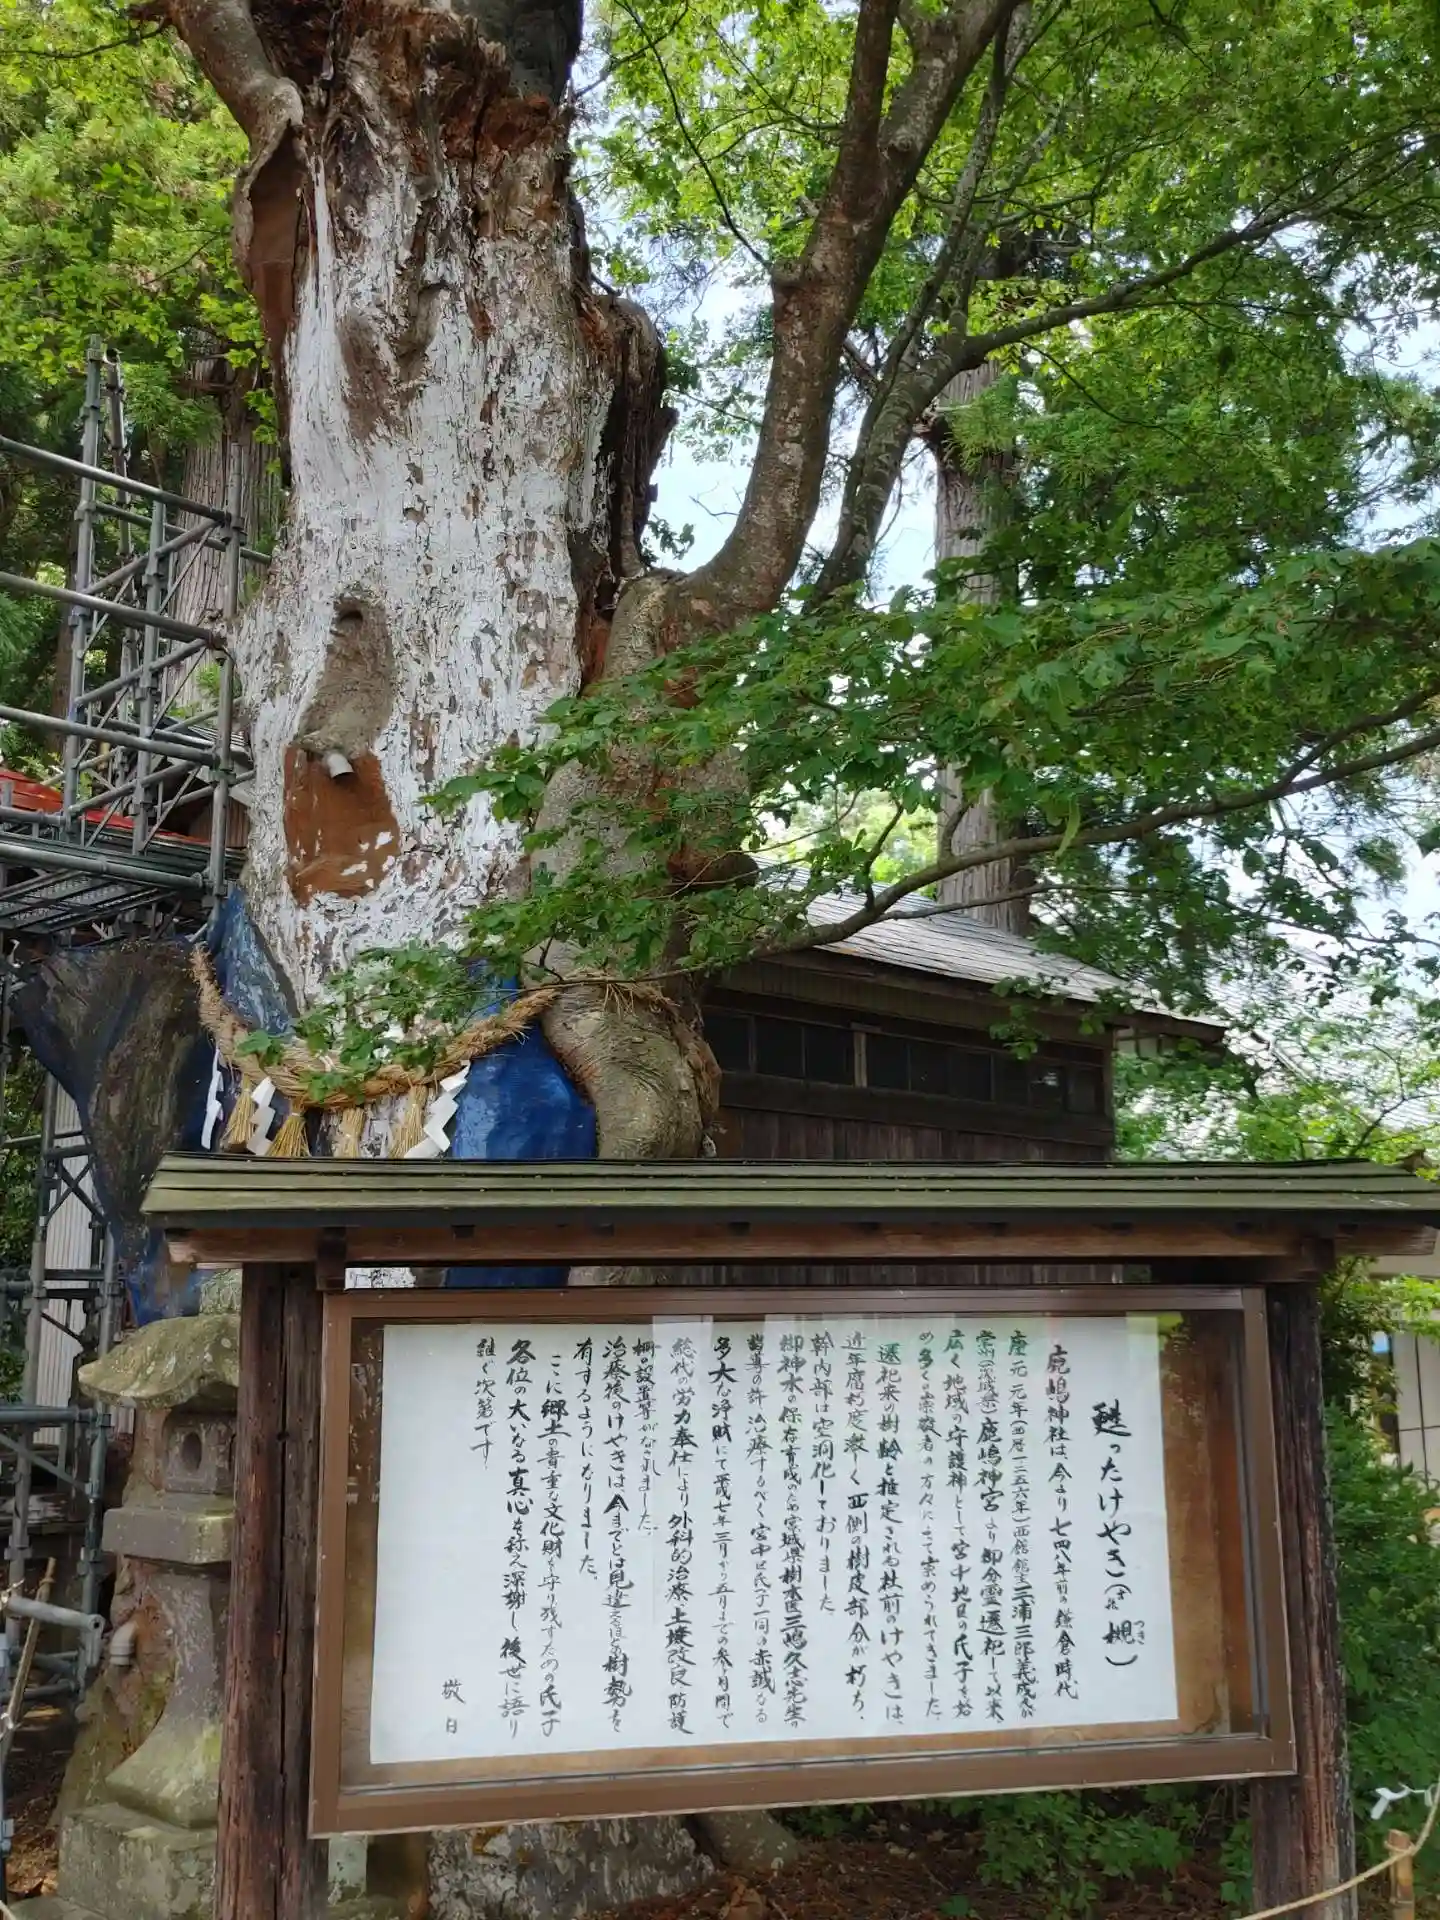 甦ったけやき(古名 槻)
つき
鹿嶋神社は、今より七四八年前の鎌倉時代
康元元年(西暦一二五六年)西舘舘主三浦三郎義成公が
常州(茨城県)鹿嶋神宮より御分霊遷祀して以来、
広く地域の守護神として宮中地区の氏子を始
め多くの崇敬者の方々によって崇められてきました。
遷祀来の樹齢と推定される社前のけやきは、
近年腐朽度激しく西側の樹皮部分が朽ち、
幹内部は空洞化しておりました。
御神木の保存育成のため宮城県樹木医三嶋久志先生の
指導の許 治療するべく宮中区氏子一同の赤誠なる
多大な浄財にて平成七年三月から五月までの参ヶ月間で
総代の労力奉仕により外科的治療、土壌改良、防護
柵の設置等がなされました。
治療後のけやきは今までとは見違えるほど樹勢を
有するようになりました。
ここに郷土の貴重な文化財を守り残すための氏子
各位の大いなる真心を称え深謝し、後世に語り
継ぐ次第です。
敬白